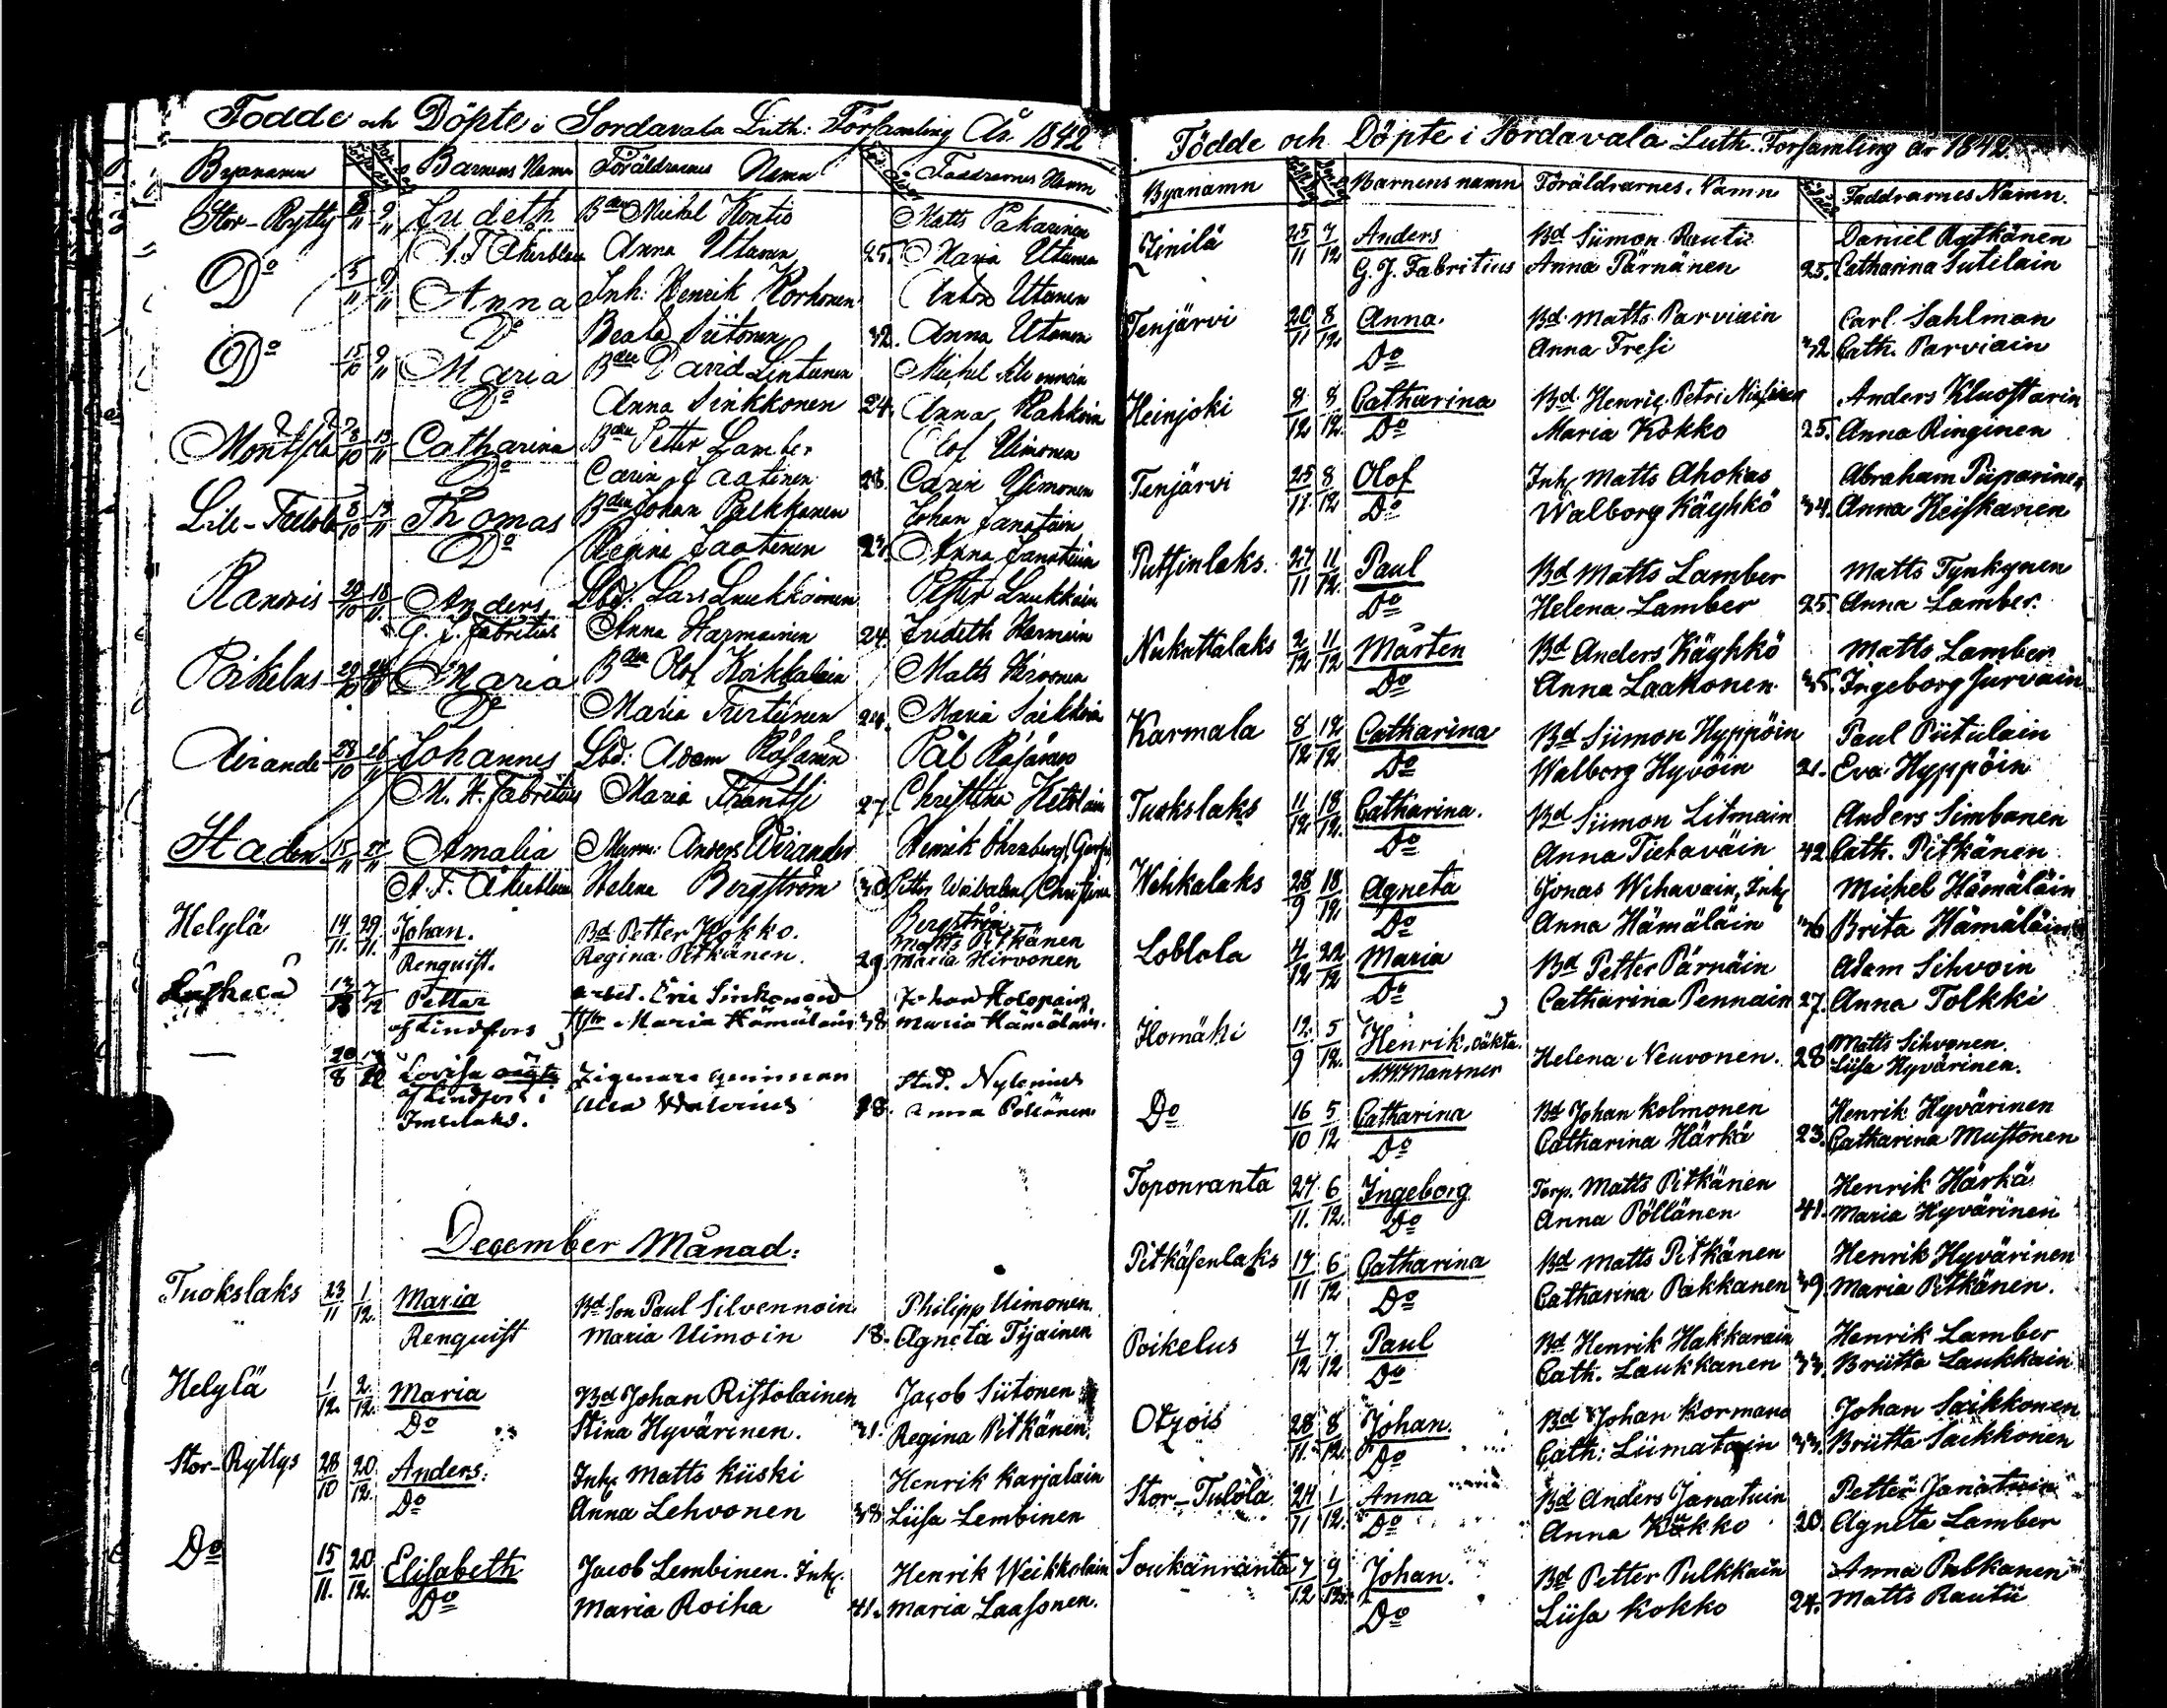 Födde och Döpte i Sordavala Luth: Församling År 1842
Byanamn Barnens Namn Föräldrarnes Namn Faddrarnes Namn
Stor-Ryttys 9/11 Judeth Bden Michel Kontio Matts Pakarinen
A. F. Åkerblom Anna Uttanen 25. Maria Uttanen
Do 5/11 9/11 Anna Inh: Henrik Korhonen Anton Utanen
Do Beata Siitonen 32. Anna Utanen
Do 15/10 9/11 Maria Bden David Lintunen Michel
Do Anna Sinkkonen 24. Anna Kahkoin
13/11 Catharina Bden Petter Lamber Olof Uimonen
Do Carin Jaatinen 28. Carin Uimonen
Lill-Tulola 8/10 13/11 Thomas Bden Johan Pulkkanen Johan Janatuin
Do Regina Jaatinen 23. Anna Janatuin
Rannis 29/10 18/11 Anders Lbd: Lars Luukkoinen Petter Luukkoin
G. J. Fabritius Anna Harmainen 24. Judeth Harmoin
Poikelus 29/10 Maria Bden Olof Koikkalain Matts Hirvonen
Do Maria Turtiinen 24. Maria Saikkoin
Airanne 28/10 26/11 Johannes Lbd: Adam Räsänen Pål Räsänen
M. H. Fabritius Maria Frantsi 27. Christina Ketolain
Staden 15/11 27/11 Amalia Murm: Anders Wirander Henrik Öhrnberg,
A. F. Åkerblom Helena Bergström 30 Petter Christina
Bergström
Helylä 14/11. 29/11. Johan. Bd Petter Kokko. Matts Pitkänen
Renquist. Regina Pitkänen. 29 Maria Hirvonen
Petter arbet. Eric Sinkonen Johan Kolopain
af Lindfors Maria Hämäläin 38 Maria Hämäläin.
20/8 Lovisa oägta Stud. Nylenius
af Lindfors i Ulla Walerius 28. Anna Pöllänen
December Månad:
Tuokslaks 23/11 1/12. Maria Bd Son Paul Silvennoin Philipp Uimonen.
Renquist Maria Uimoin 18. Agneta Tijainen
Helylä 1/12. 2/12. Maria Bd Johan Ristolainen Jacob Siitonen
Do Stina Hyvärinen. 31. Regina Pitkänen.
Stor-Ryttys 28/10 20/12. Anders: Inh. Matts Kiiski Henrik Karjalain
Do Anna Lehvonen 38 Liisa Lembinen
Do 15/11. 20/12. Elisabeth Jacob Lembinen. Inh. Henrik Weikkolain
Do Maria Roiha 41. Maria Laasonen.
Födde och Döpte i Sordavala Luth. Forsamling år 1842.
Byanamn Barnens namn Föräldrarnes Namn Faddrarnes Namn.
25/11 7/12 Anders Bd Siimon Rautii Daniel Rytkänen
G. J. Fabritius Anna Pärnänen 25. Catharina Sutilain
Tenjärvi 20/11 8/12 Anna. Bd. Matts Parviain Carl Sahlman
Do Anna Fresi 32 Cath. Parviain
Heinjoki 8/12 8/12. Catharina Bd. Henric Petri Anders Kluostarin
Do Maria Kokko 25. Anna Ringinen
Tenjärvi 25/11. 8/12 Olof Inh. Matts Ahokas Abraham Piiparinen
Do Walborg Käyhkö 34. Anna Heiskanen
Putsinlaks. 27/11 11/12. Paul Bd Matts Lamber Matts Tynkynen
Do Helena Lamber 25. Anna Lamber.
Nukuttalaks 2/12 11/12 Mårten Bd Anders Käyhkö Matts Lamber
Do Anna Laakonen. 35. Ingeborg Jurvain
Karmala 8/12 12/12 Catharina Bd Siimon Hyppöin Paul Piitulain
Do Walborg Hyvöin 21. Eva Hyppöin
Tuokslaks 11/12 18/12. Catharina. Bd Siimon Litmain Anders Simbanen
Do Anna Tietäväin 42. Cath. Pitkänen
Wehkalaks 28/9 18/12. Agneta Jonas Wihavain, Inh. Michel Hämäläin
Do Anna Hämäläin 36 Brita Hämäläin
Loblola 4/12 22/12 Maria Bd Petter Pärnäin Adam Sihvoin
Do Catharina Pennain 27. Anna Tolkki
12./9 5/12. Henrik, oäkta. Matts Sihvonen.
Mansner Helena Neuvonen. 28 Liisa Hyvärinen.
Do 16/10 5/12 Catharina Bd Johan Kolmonen Henrik Hyvärinen
Do Catharina Härkä 23. Catharina Mustonen
Toponranta 27/11. 6/12. Ingeborg Torp. Matts Pitkänen Henrik Härkä
Do Anna Pöllänen 41. Maria Hyvärinen
Pitkäsenlaks 17/11 6/12 Catharina Bd Matts Pitkänen Henrik Hyvärinen
Do Catharina Pakkanen 39. Maria Pitkänen.
Poikelus 4/12 7/12 Paul Bd Henrik Hakkarain Henrik Lamber
Do Cath. Laukkanen 33. Briitta Laukkain
Otzois 28/11. 8/12. Johan. Bd Johan Kormano Johan Saikkonen
Do Cath: Liimatain 33. Briitta Saikkonen
Stor-Tulola 24/11 1/12. Anna Bd Anders Janatuin Petter Janatuin
Do Anna Kokko 20. Agneta Lamber
Soukanranta 7/12 9/12. Johan. Bd Petter Pulkkain Anna Pulkanen
Do Liisa Kokko 24. Matts Rautii